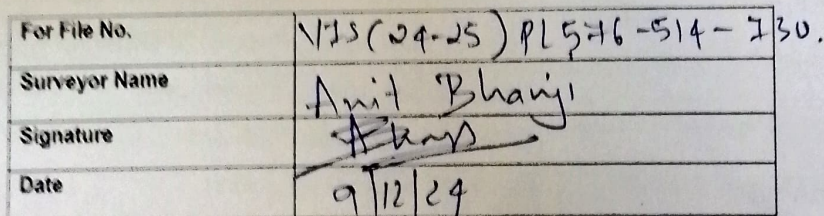 For File No. VIS(24-25) PL576-514-730.
Surveyor Name Anit Bhanji
Signature
Date 9/12/24